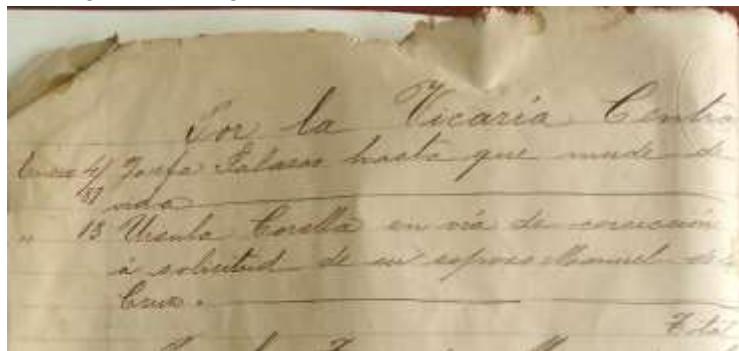 Por la Vicaría Centra
Enero 4/87 Josefa Salazar hasta que mude de
vida
" 13 Ursula Corella en vía de corrección
á solicitud de su esposo Manuel de
Cruz.
Total